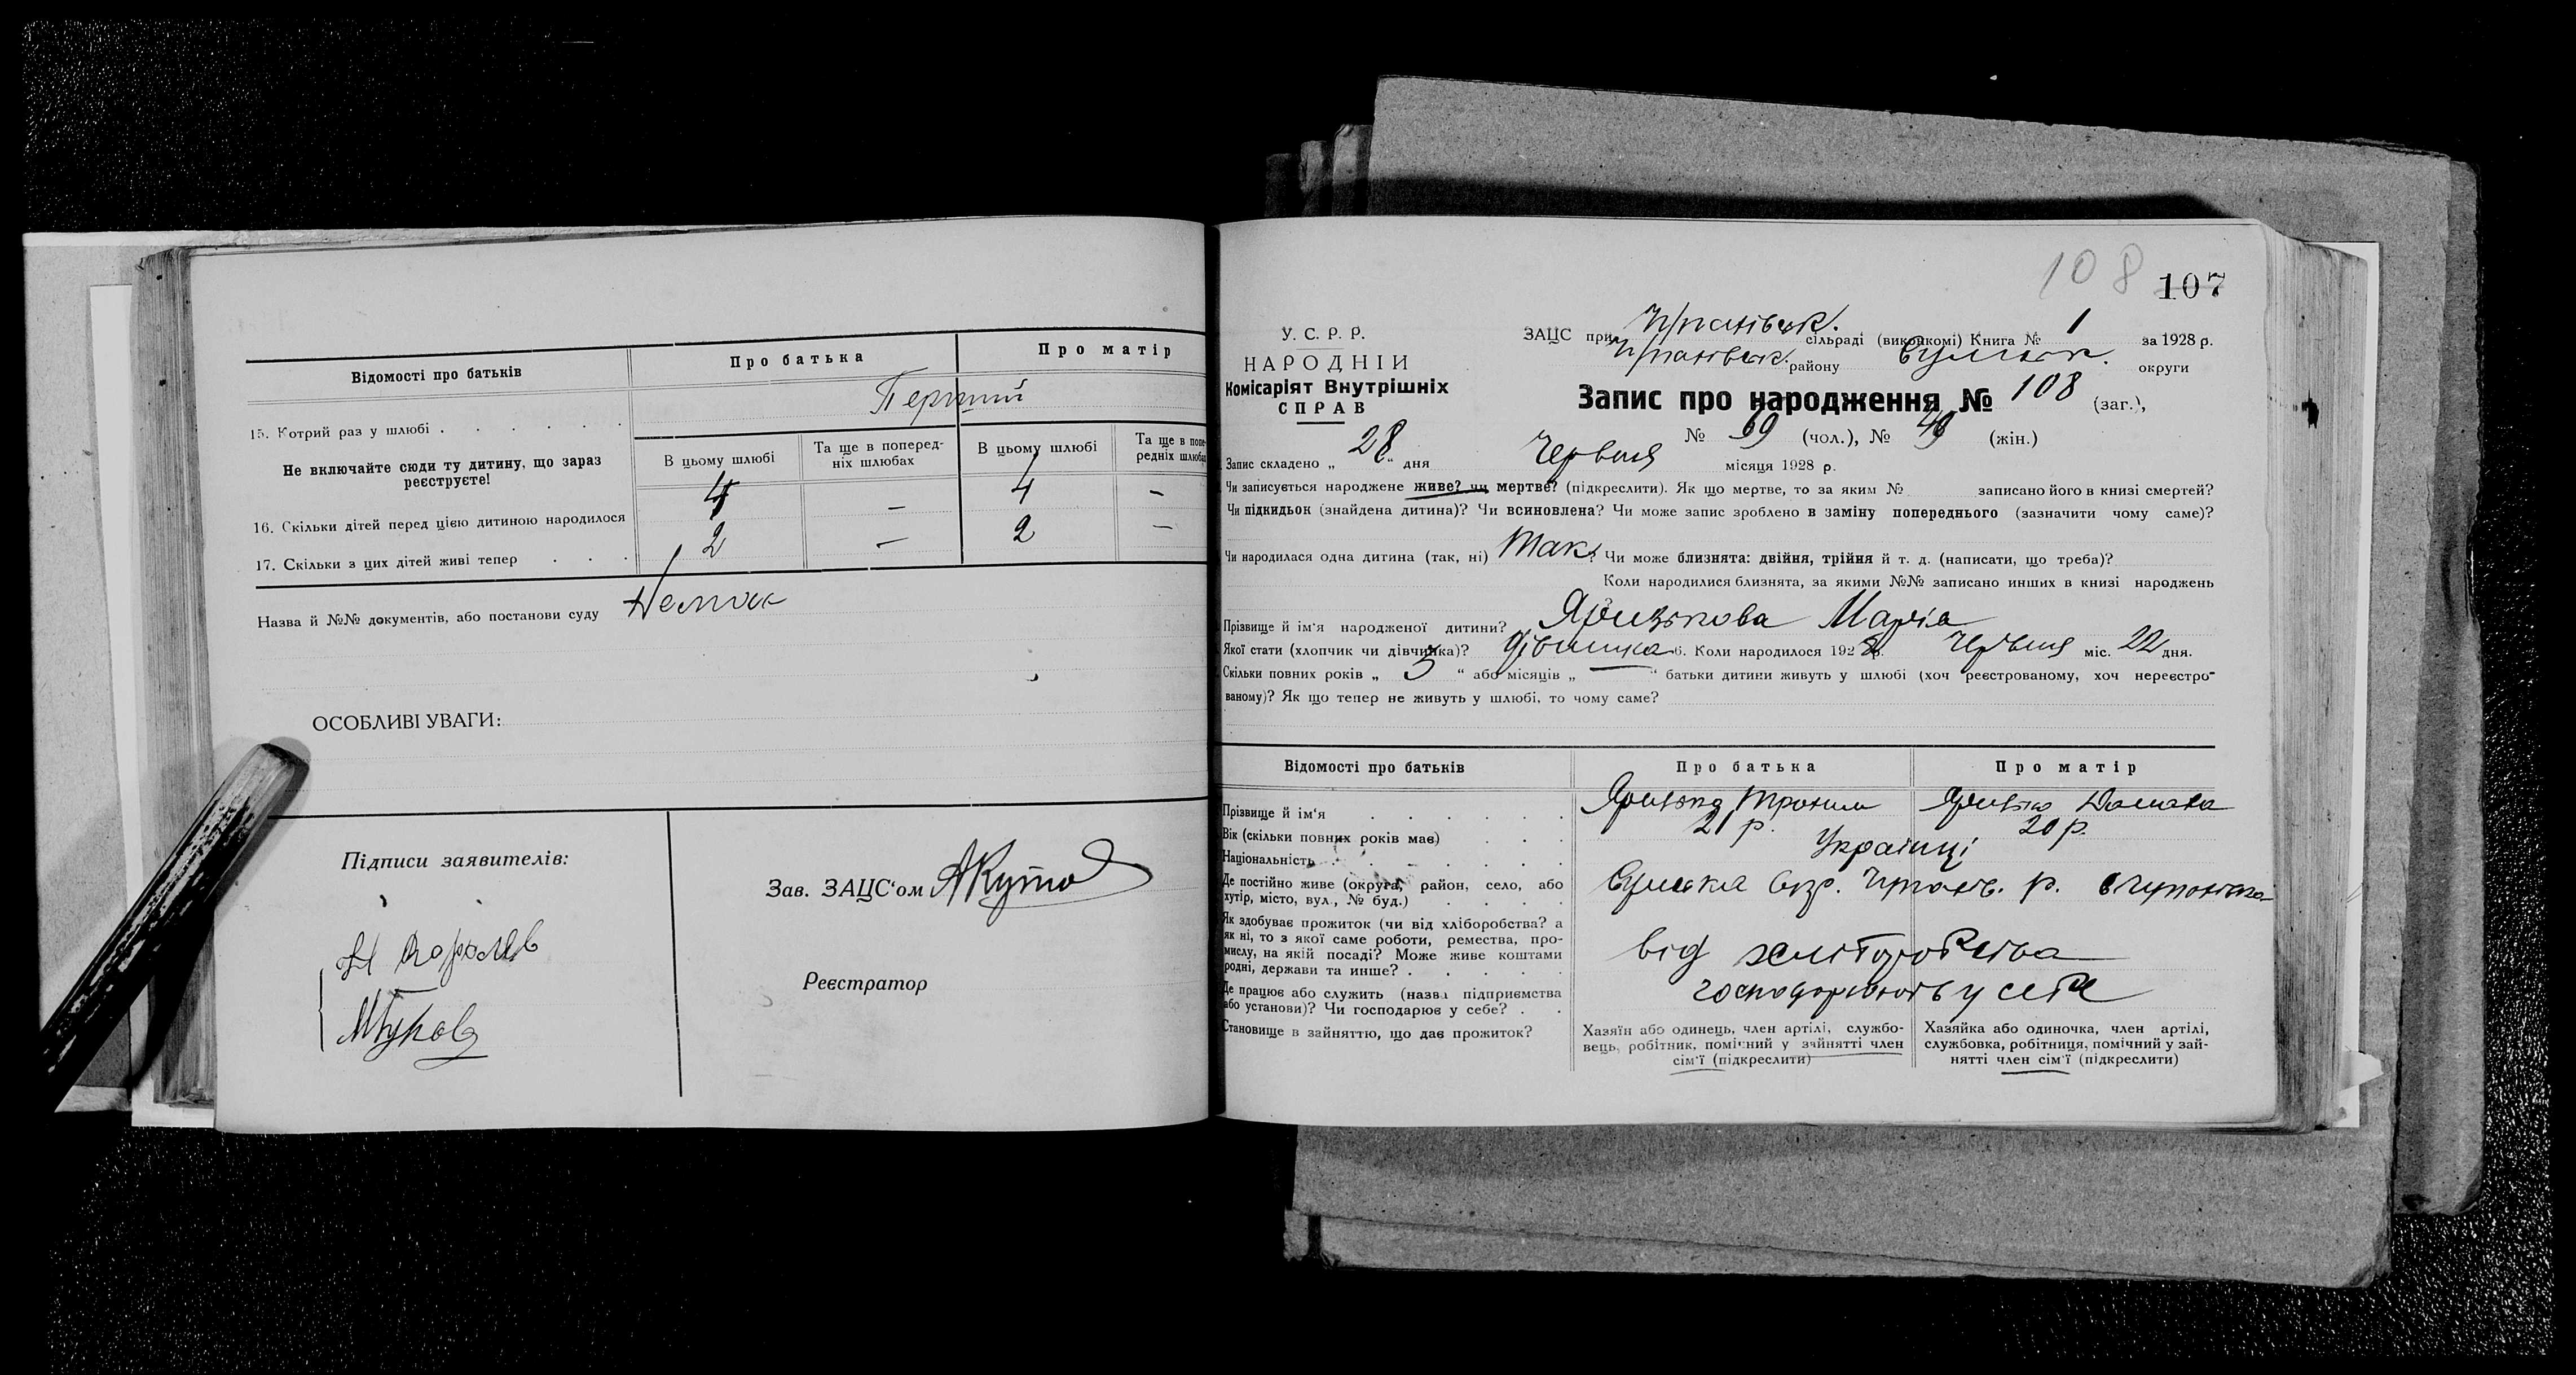 Відомості про батьків
Про батька
Про матір
15. Котрий раз у шлюбі
Перший
Не включайте сюди ту дитину, що зараз реєструєте!
В цьому шлюбі
Та ще в поперед-
ніх шлюбах
В цьому шлюбі
Та ще в попе-
редніх шлюбах
16. Скільки дітей перед цією дитиною народилося
4 — 4 —
17. Скільки з цих дітей живі тепер
2 — 2 —
Назва й №№ документів, або постанови суду
ОСОБЛИВІ УВАГИ:
Підписи заявителів:
Зав. ЗАЦС'ом
Реєстратор
108 107
У. С. Р. Р.
НАРОДНІЙ
Комісаріят Внутрішніх
СПРАВ
ЗАЦС при сільраді (виконкомі) Книга № 1 за 1928 р.
району округи
Запис про народження № 108 (заг.),
№ 69 (чол.), № 49 (жін.)
Запис складено „28“ дня Червня місяця 1928 р.
Чи записується народжене живе? чи мертве? (підкреслити). Як що мертве, то за яким № записано його в книзі смертей?
Чи підкидьок (знайдена дитина)? Чи всиновлена? Чи може запис зроблено в заміну попереднього (зазначити чому саме)?
Чи народилася одна дитина (так, ні) Так? Чи може близнята: двійня, трійня й т. д. (написати, що треба)?
Коли народилися близнята, за якими №№ записано инших в книзі народжень
Прізвище й ім'я народженої дитини? Марія
Якої стати (хлопчик чи дівчинка)? Дівчинка 6. Коли народилося 1928 р. Червня міс. 22 дня.
Скільки повних років „3“ або місяців „—“ батьки дитини живуть у шлюбі (хоч реєстрованому, хоч нереєстро-
ваному)? Як що тепер не живуть у шлюбі, то чому саме?
Відомості про батьків
Про батька
Про матір
Прізвище й ім'я
Вік (скільки повних років має)
21 р. 20 р.
Національність
Українці
Де постійно живе (округа, район, село, або
хутір, місто, вул., № буд.)
Як здобуває прожиток (чи від хліборобства? а
як ні, то з якої саме роботи, ремества, про-
мислу, на якій посаді? Може живе коштами
родні, держави та инше?
від хліборобства
Де працює або служить (назва підприємства
або установи)? Чи господарює у себе?
господарюють у себе
Становище в зайняттю, що дає прожиток?
Хазяїн або одинець, член артілі, службо-
вець, робітник, помічний у зайнятті член
сім'ї (підкреслити)
Хазяйка або одиночка, член артілі,
службовка, робітниця, помічний у зай-
нятті член сім'ї (підкреслити)